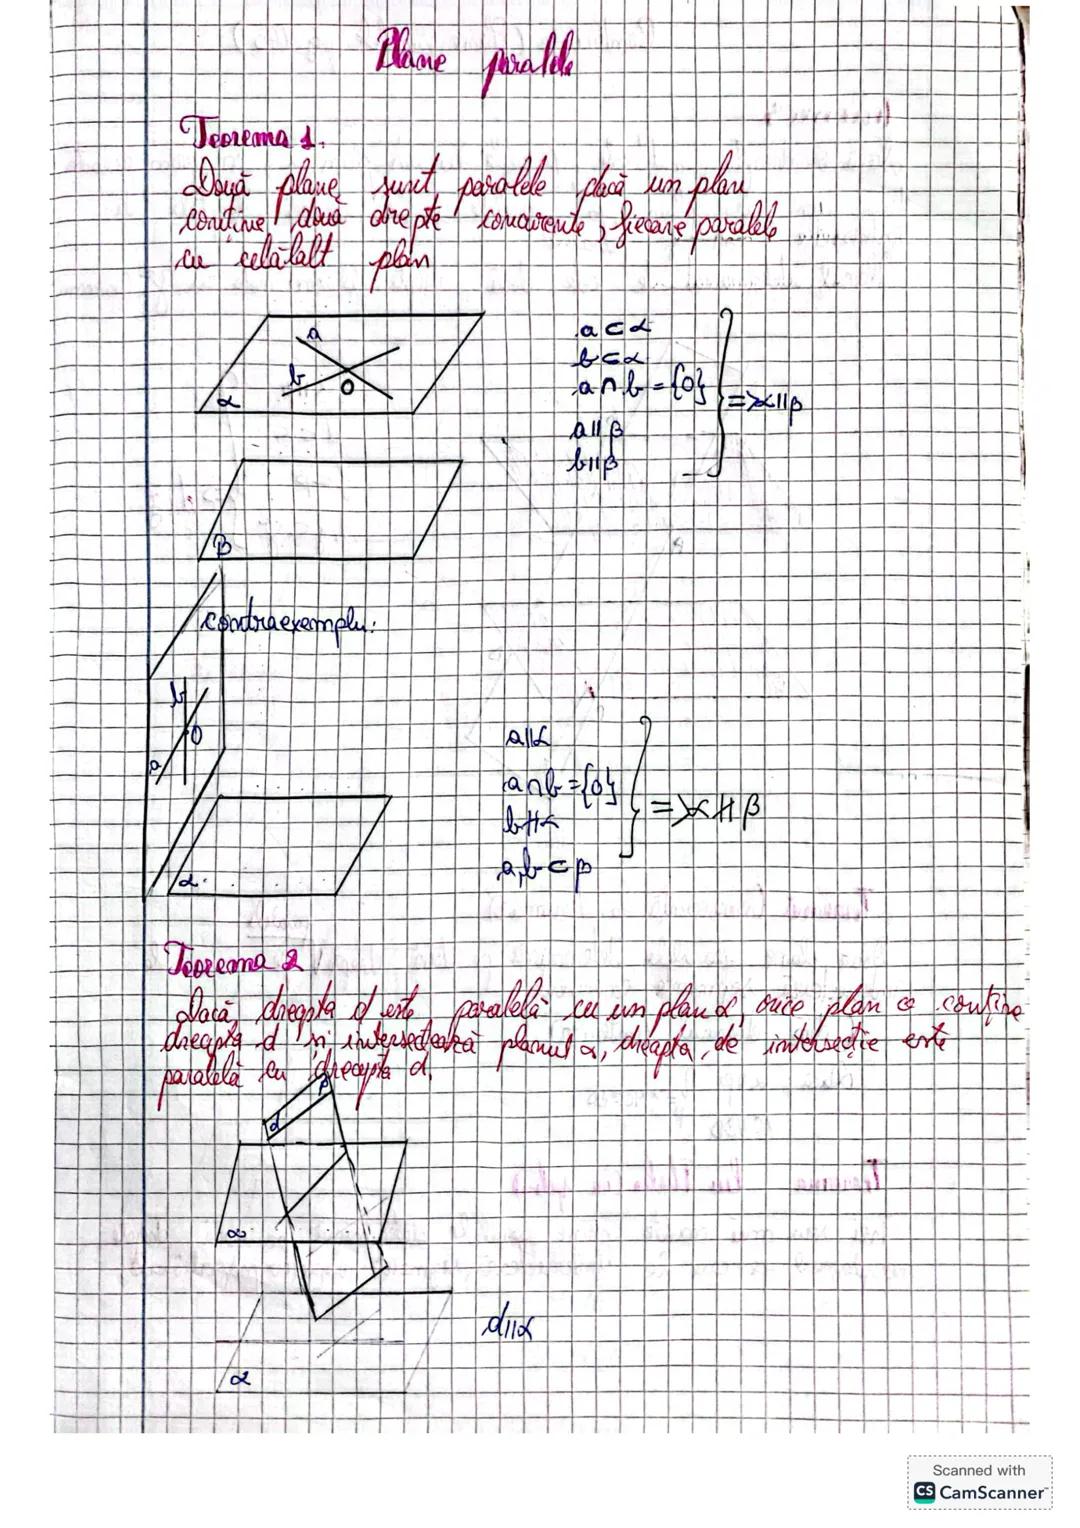 Plane paralele
Teorema 1.
Două plane sunt paralele dacă un plan
conține două drepte concurente, fiecare paralele
cu celălalt plan
a
b
O
α
a ⊂ α
b ⊂ α
a ∩ b = {O}
a || β
b || β
=> α || β
β
contraexemplu:
b
O
a
α
a || α
a ∩ b = {O}
b ∦ α
a, b ⊂ β
=> α ∦ β
Teorema 2
Dacă dreapta d este paralelă cu un plan α, orice plan ce conține
dreapta d și intersectează planul α, dreapta de intersecție este
paralelă cu dreapta d.
β
d
α
d || α
α
Scanned with
CS CamScanner